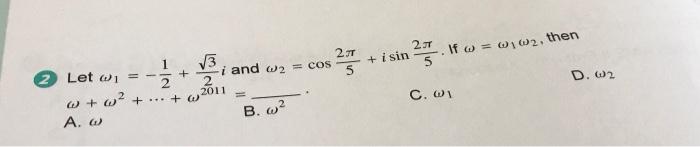 2 Let ω₁ = -1/2 + √3/2 i and ω₂ = cos 2π/5 + i sin 2π/5. If ω = ω₁ω₂, then
ω + ω² + ··· + ω²⁰¹¹ = ______.
A. ω B. ω² C. ω₁ D. ω₂